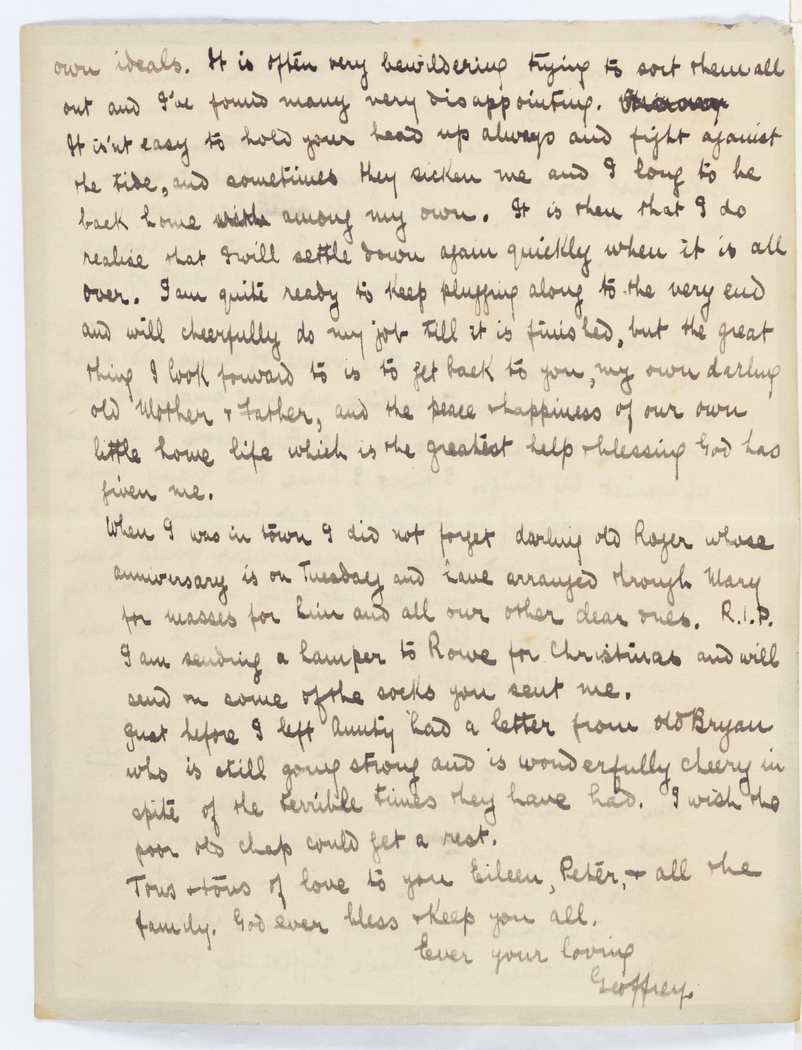 own ideals. It is often very bewildering trying to sort them all
out and I've found many very disappointing.
It is'nt easy to hold your head up always and fight against
the tide, and sometimes they sicken me and I long to be
back home with among my own. It is then that I do
realise that I will settle down again quickly when it is all
over. I am quite ready to keep plugging along to the very end
and will cheerfully do my job till it is finished, but the great
thing I look forward to is to get back to you, my own darling
old Mother + Father, and the peace + happiness of our own
little home life which is the greatest help + blessing God has
given me.
When I was in town I did not forget darling old Roger whose
anniversary is on Tuesday and have arranged through Mary
for masses for him and all our other dear ones. R.I.P.
I am sending a hamper to Rowe for Christmas and will
send on some of the socks you sent me.
Just before I left Aunty had a letter from old Bryan
who is still going strong and is wonderfully cheery in
spite of the terrible times they have had. I wish the
poor old chap could get a rest.
Tons + tons of love to you Eileen, Peter, + all the
family. God ever bless + keep you all.
Ever your loving
Geoffrey.